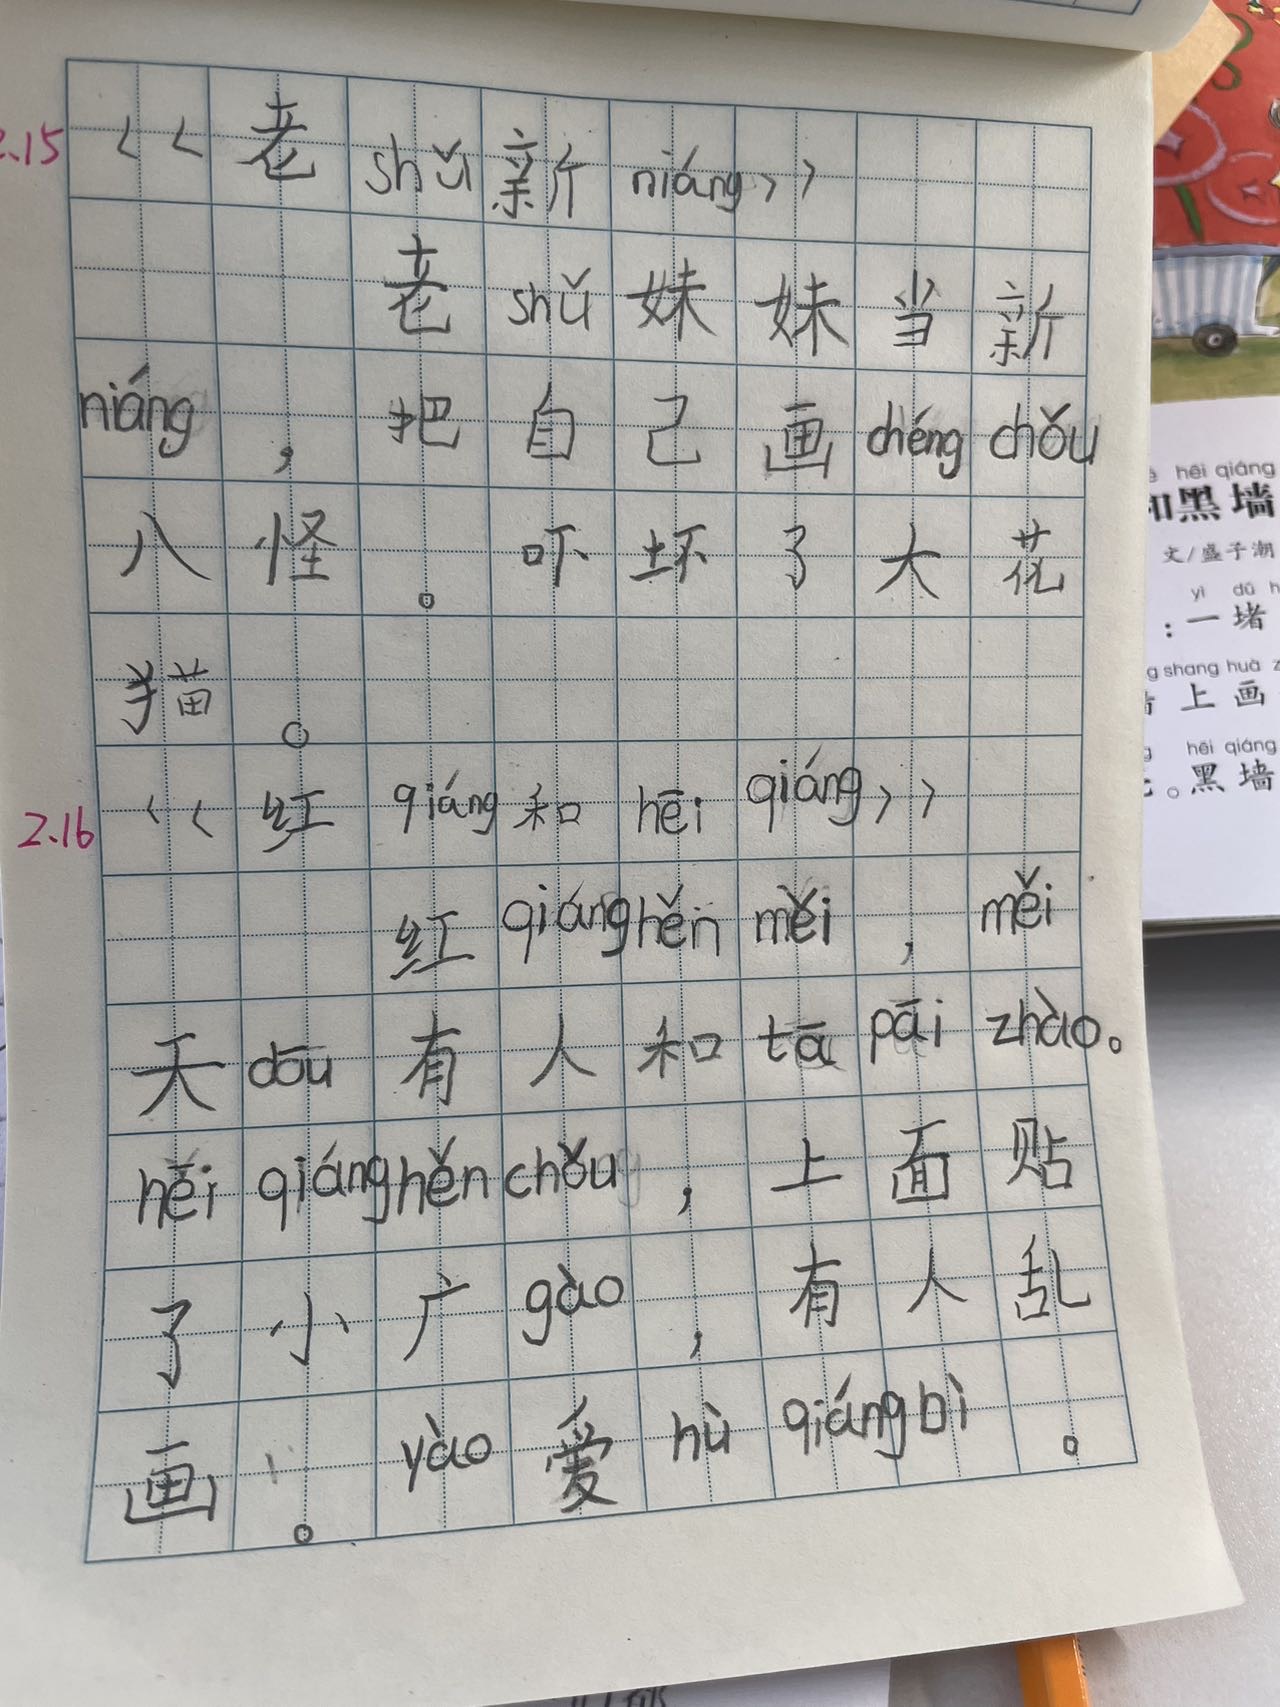 2.15 《老shǔ新niáng》
老shǔ妹妹当新
niáng，把自己画chéng chǒu
八怪。吓坏了大花
猫。
2.16 《红qiáng和hēi qiáng》
红qiáng hěn měi，měi
天dōu有人和tā pāi zhào。
hēi qiáng hěn chǒu，上面贴
了小广gào，有人乱
画。yào爱hù qiáng bì。
hēi qiáng
和黑墙
文/盛子潮
yì dǔ
：一堵
shang huà
上画
hēi qiáng
。黑墙